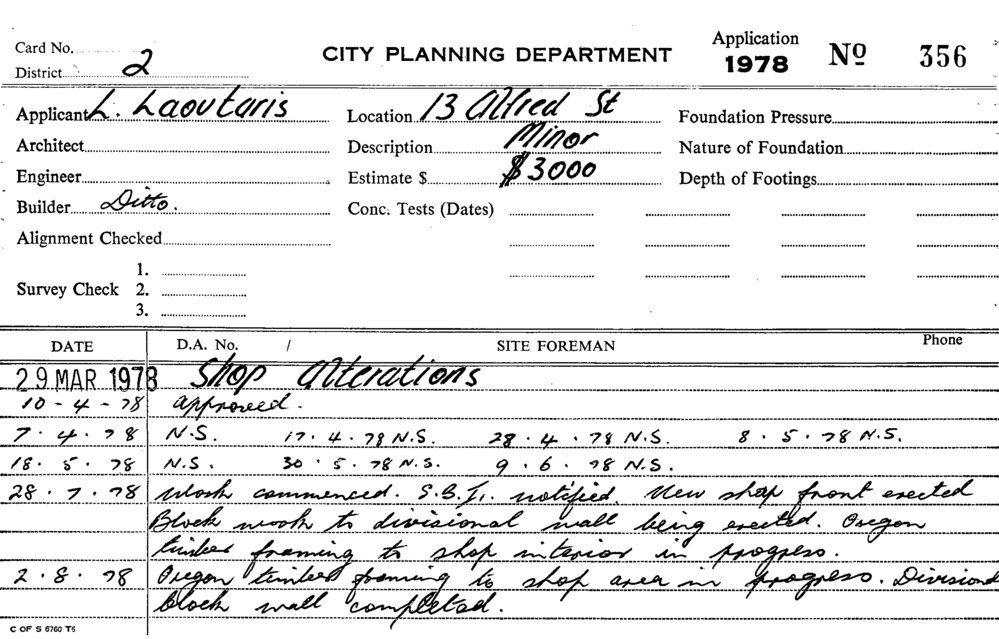 Card No.
District 2
CITY PLANNING DEPARTMENT
Application
1978
Nº 356
Applicant L. Laoutaris
Location 13 Alfred St
Foundation Pressure
Architect
Description Minor
Nature of Foundation
Engineer
Estimate $ $3000
Depth of Footings
Builder Ditto.
Conc. Tests (Dates)
Alignment Checked
Survey Check 1.
2.
3.
DATE D.A. No. / SITE FOREMAN Phone
29 MAR 1978 Shop Alterations
10-4-78 Approved.
7.4.78 N.S. 17.4.78 N.S. 28.4.78 N.S. 8.5.78 N.S.
18.5.78 N.S. 30.5.78 N.S. 9.6.78 N.S.
28.7.78 Work commenced. notified. New shop front erected
Block work to divisional wall being erected. Oregon
timber framing to shop interior in progress.
2.8.78 Oregon timber framing to shop area in progress. Division
block wall completed.
C OF S 6760 T5